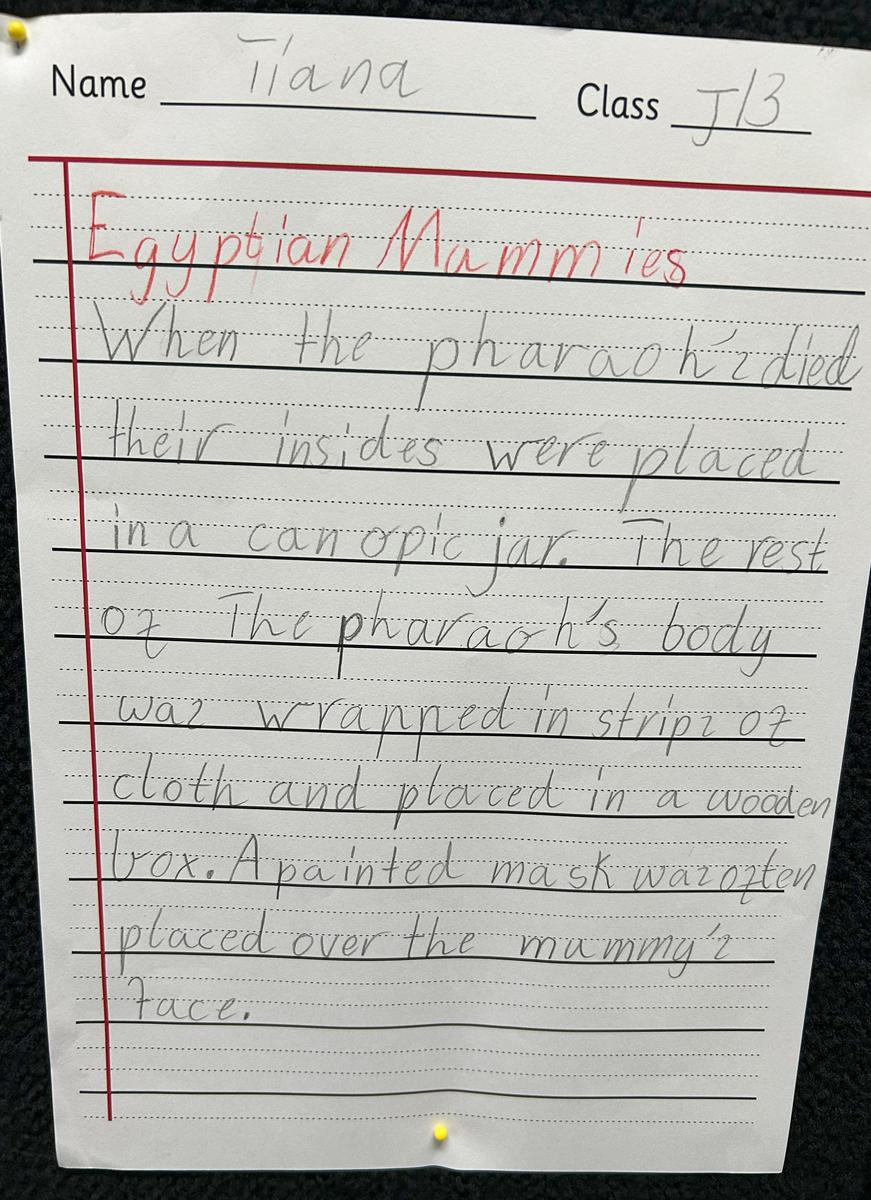 Name Tiana Class J13
Egyptian Mummies
When the pharaoh's died
their insides were placed
in a canopic jar. The rest
of The pharaoh's body
was wrapped in strips of
cloth and placed in a wooden
box. A painted mask was often
placed over the mummy's
face.